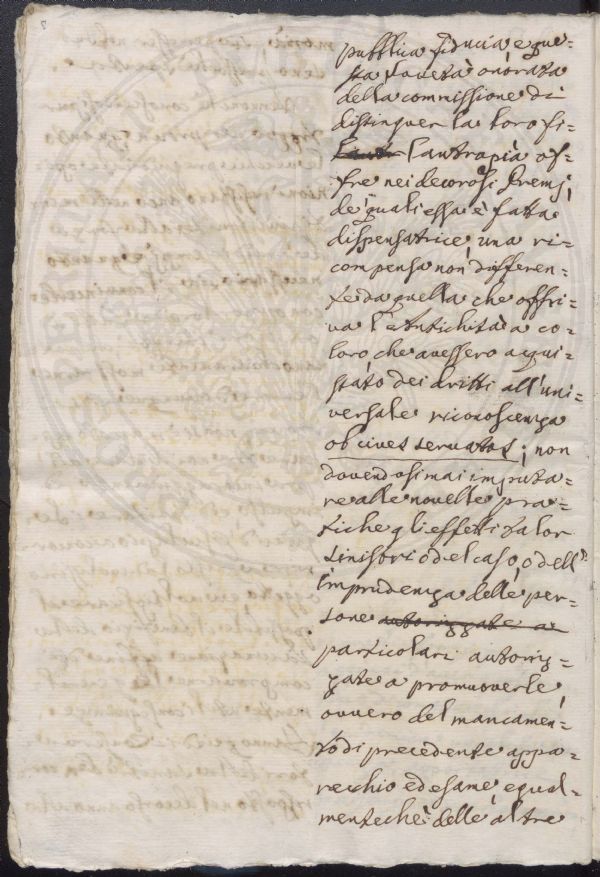 pubblica fiducia e que-
sta Società onorata
della commissione di
distinguer la loro fi-
lantropia of-
fre nei decorosi Premj,
de' quali essa è fatta
dispensatrice, una ri-
compensa non differen-
te da quella che offri-
va l'Antichità a co-
loro che avessero acqui-
stato dei dritti all'uni-
versale riconoscenza
ob cives servatos; non
dovendosi mai imputa-
re alle novelle pra-
tiche gli effetti talor
sinistri o del caso, o dell'
imprudenza delle per-
sone autorizzate a
particolari autoriz-
zate a promuoverle,
ovvero del mancamen-
to di precedente appa-
recchio ed esame egual-
mente che delle altre